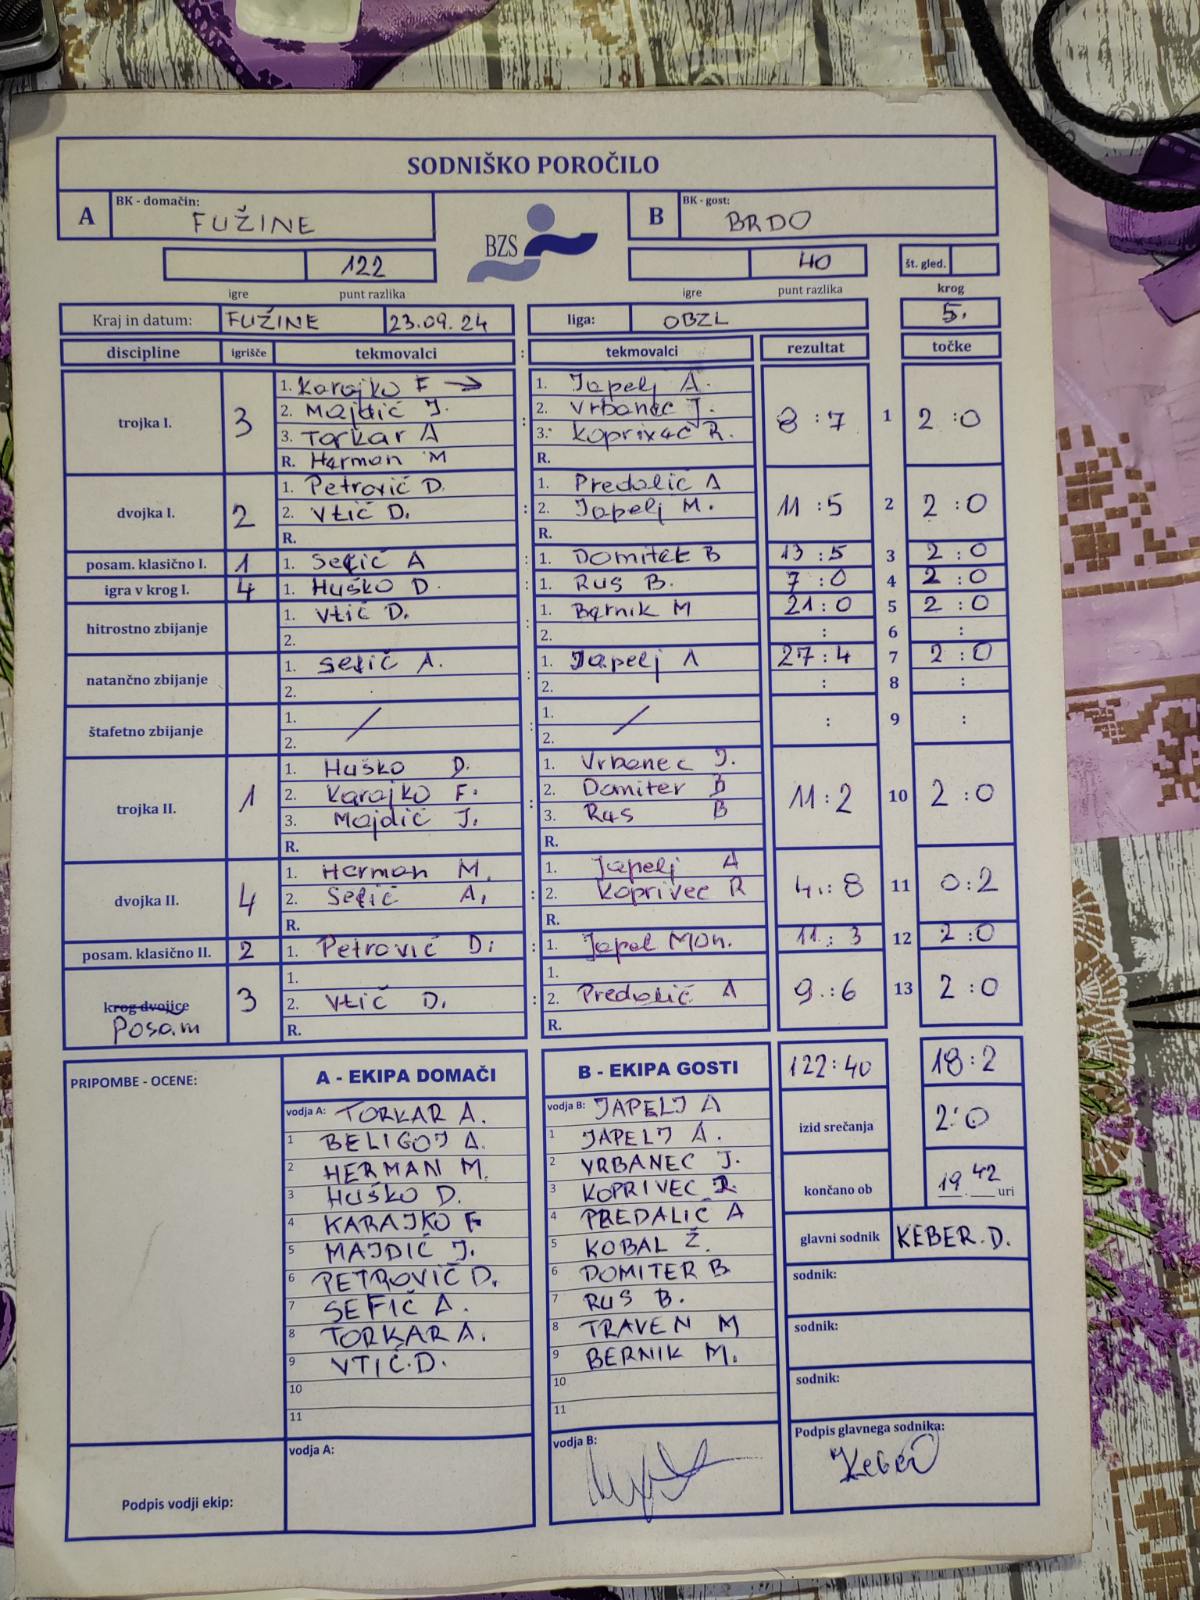 SODNIŠKO POROČILO
A BK - domačin: FUŽINE BZS B BK - gost: BRDO
122 40 št. gled.
igre punt razlika igre punt razlika krog
Kraj in datum: FUŽINE 23.09.24 liga: OBZL 5.
discipline igrišče tekmovalci : tekmovalci rezultat točke
trojka I. 3 : 8:7 1 2:0
1. Karajko F → 1. Japelj A.
2. Majdić J. 2. Vrbanec J.
3. Torkar A 3. Koprivec R.
R. Herman M R.
dvojka I. 2 : 11:5 2 2:0
1. Petrović D. 1. Predalič A
2. Vtič D. 2. Japelj M.
R. R.
posam. klasično I. 1 1. Sefič A : 1. Domiter B 13:5 3 2:0
igra v krog I. 4 1. Huško D. : 1. Rus B. 7:0 4 2:0
hitrostno zbijanje 1. Vtič D. : 1. Bernik M 21:0 5 2:0
2. 2. : 6 :
natančno zbijanje 1. Sefič A. : 1. Japelj A 27:4 7 2:0
2. 2. : 8 :
štafetno zbijanje 1. / : 1. / : 9 :
2. 2.
trojka II. 1 : 11:2 10 2:0
1. Huško D. 1. Vrbanec J.
2. Karajko F. 2. Domiter B
3. Majdič J. 3. Rus B
R. R.
dvojka II. 4 : 4:8 11 0:2
1. Herman M. 1. Japelj A
2. Sefič A. 2. Koprivec R
R. R.
posam. klasično II. 2 1. Petrovič D. : 1. Japel Mon. 11:3 12 2:0
krog dvojice 3 : 9:6 13 2:0
Posam
1. 1.
2. Vtič D. 2. Predalič A
R. R.
PRIPOMBE - OCENE: A - EKIPA DOMAČI B - EKIPA GOSTI 122:40 18:2
vodja A: TORKAR A. vodja B: JAPELJ A
1 BELIGOJ A. 1 JAPELJ A. izid srečanja 2:0
2 HERMAN M. 2 VRBANEC J.
3 HUŠKO D. 3 KOPRIVEC R končano ob 19 42 uri
4 KARAJKO F 4 PREDALIČ A
5 MAJDIČ J. 5 KOBAL Ž. glavni sodnik KEBER.D.
6 PETROVIČ D. 6 DOMITER B
7 SEFIČ A. 7 RUS B. sodnik:
8 TORKAR A. 8 TRAVEN M sodnik:
9 VTIČ.D. 9 BERNIK M.
10 10 sodnik:
11 11
Podpis vodji ekip: vodja A: vodja B: Podpis glavnega sodnika:
Keber